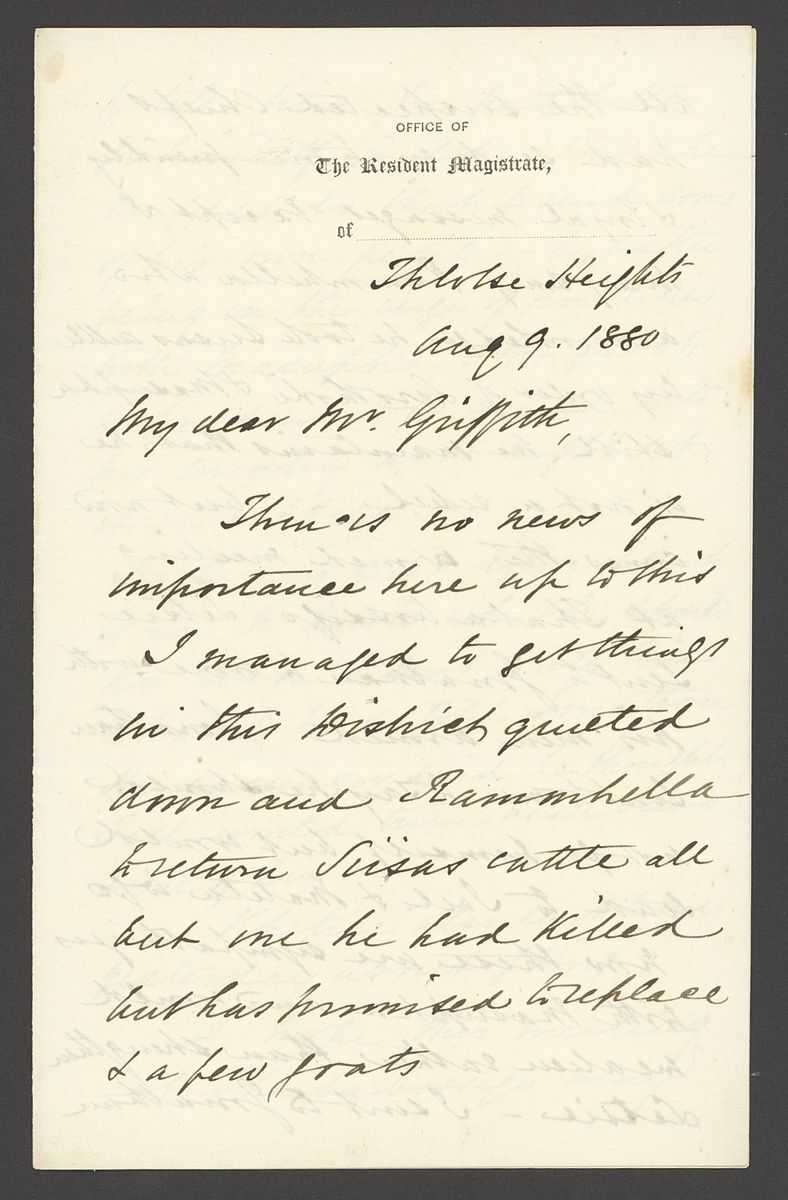 OFFICE OF
The Resident Magistrate,
of
Thlotse Heights
Aug 9. 1880
My dear Mr. Griffith,
There is no news of
importance here up to this
I managed to get things
in this District quieted
down and Ramonhella
to return Siisas cattle all
but one he had killed
but has promised to replace
& a few goats